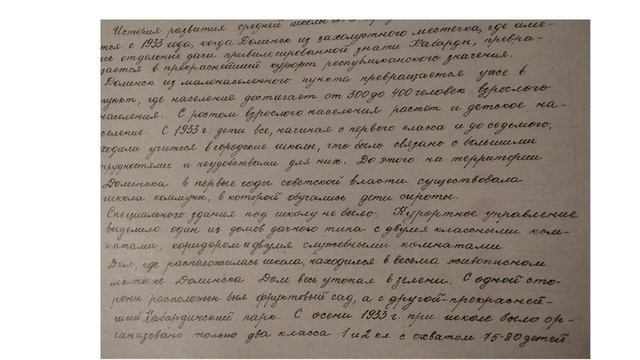 История развития средней школы
тся с 1933 года, когда Долинск из захолустного местечка, где име-
лись отдельные дачи привилегированной знати Кабарды, превра-
щается в прекраснейший курорт республиканского значения.
Долинск из малонаселенного пункта превращается уже в
пункт, где население достигает от 300 до 400 человек взрослого
населения. С ростом взрослого населения растет и детское на-
селение. С 1933 г. дети все, начиная с первого класса и до седьмого,
ходили учиться в городские школы, что было связано с большими
трудностями и неудобствами для них. До этого на территории
Долинска в первые годы советской власти существовала
школа коммуны, в которой обучались дети сироты.
Специального здания под школу не было. Курортное управление
выделило один из домов дачного типа с двумя классными ком-
натами, коридором и двумя служебными комнатами
Дом, где расположилась школа, находился в весьма живописном
местике Долинска Дом весь утопал в зелени. С одной сто-
роны расположен был фруктовый сад, а с другой - прекрасней-
ший Кабардинский парк. С осени 1933 г. при школе было ор-
ганизовано только два класса 1 и 2 кл. с охватом 75-80 детей.